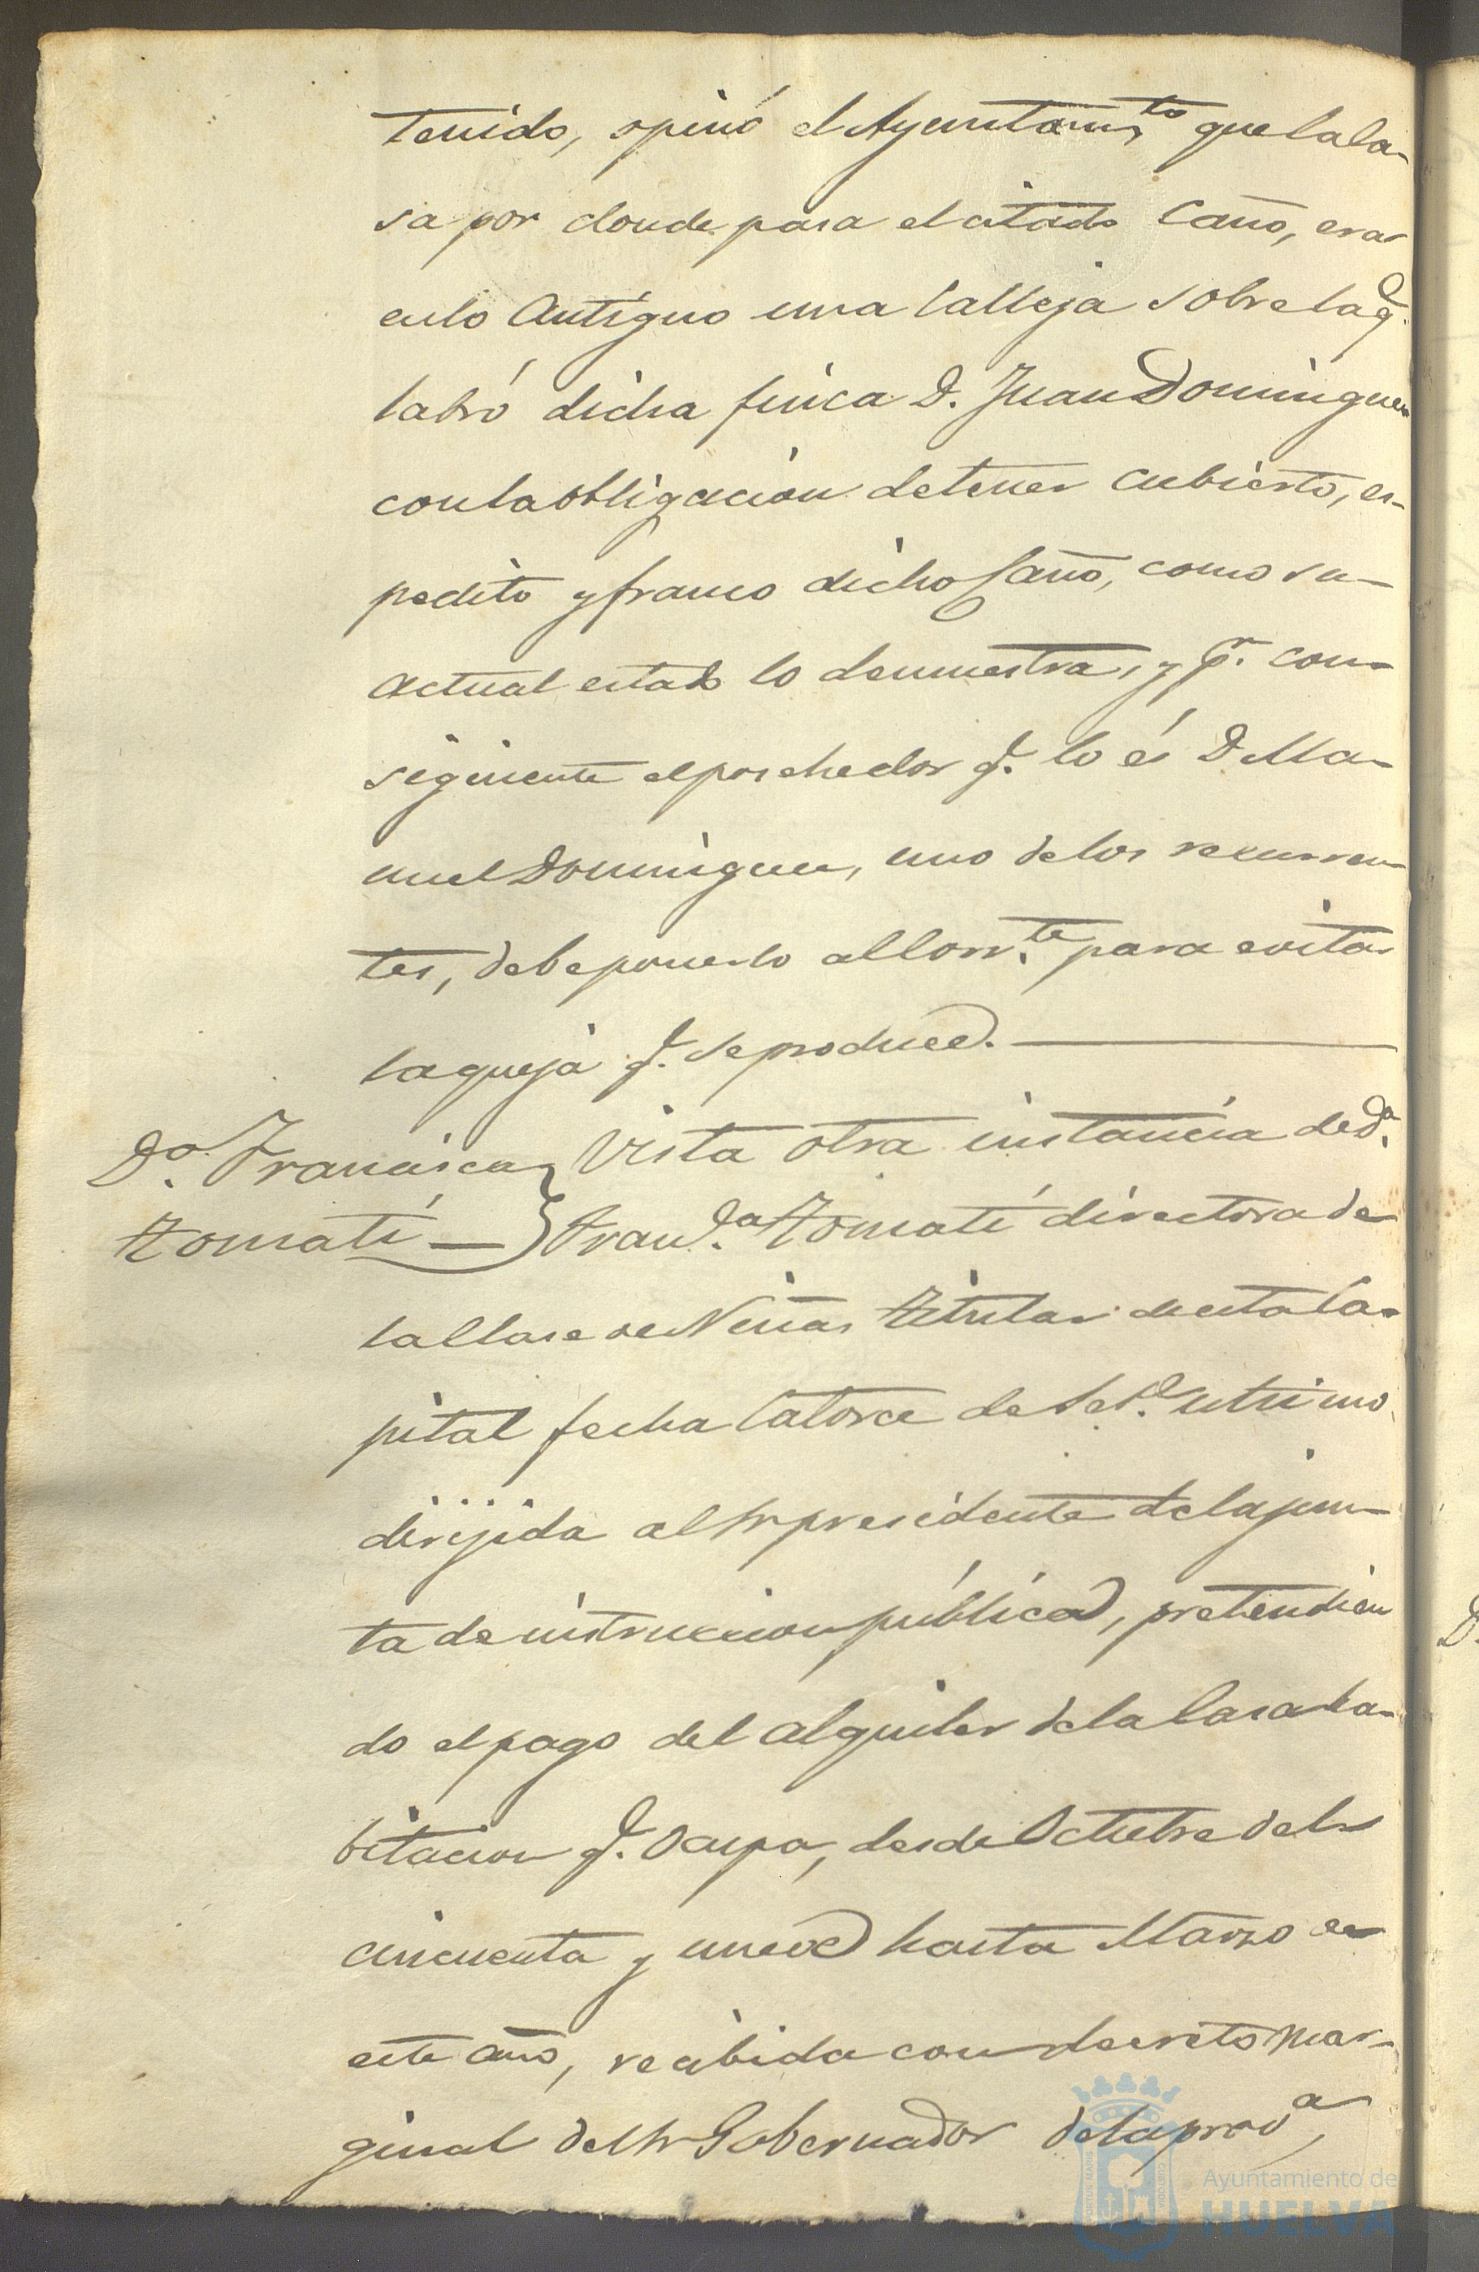 tenido, opinó el Ayuntam.to que la Ca-
sa por donde pasa el citado Caño, era
en lo Antíguo una Calleja sobre la q.e
labró dicha finca D. Juan Dominguez
con la obligacion de tener cubierto, es-
pedito y franco dicho Caño, como su
actual estado lo demuestra, y p.r con-
siguiente el posehedor q.e lo és D Ma-
nuel Dominguez, uno de los recurren-
tes, debe ponerlo al Corr.te para evitar
la queja q.e se produce.
D.a Francisca
Tomatí
Vista otra instancia de D.a
Fran.ca Tomatí directora de
la Clase de Niñas titular de esta Ca-
pital fecha Catorce de Set.e último
dirijida al Sr presidente de la jun-
ta de instruccion pública, pretendien
do el pago del alquiler de la Casa ha-
bitacion q.e Ocupa, desde Octubre del
cincuenta y nueve hasta Marzo de
este año, recibida con decreto mar-
ginal del Sr Gobernador de la prov.a,
Ayuntamiento de
HUELVA